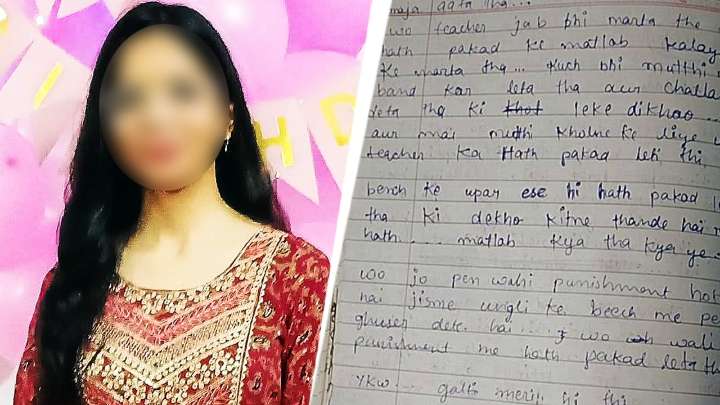 maja aata tha...
wo teacher jab bhi marta the
hath pakad ke matlab kalay
ke marta tha... Kuch bhi mutthi
band kar leta tha aur challa
deta tha ki leke dikhao...
aur mai mutthi kholne ke liye
teacher ka Hath pakad leti thi
bench ke upar ese hi hath pakad
tha ki dekho kitne thande hai
hath.... matlab kya tha kya ye
woo jo pen wahi punishment hot
hai jisme ungli ke beech me pe
ghuser dete hai... wo wali
punishment me hath pakad leta th
YKW... galti meri hi thi